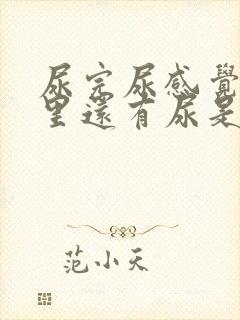 尿完尿感覺
里還有尿是
范小天